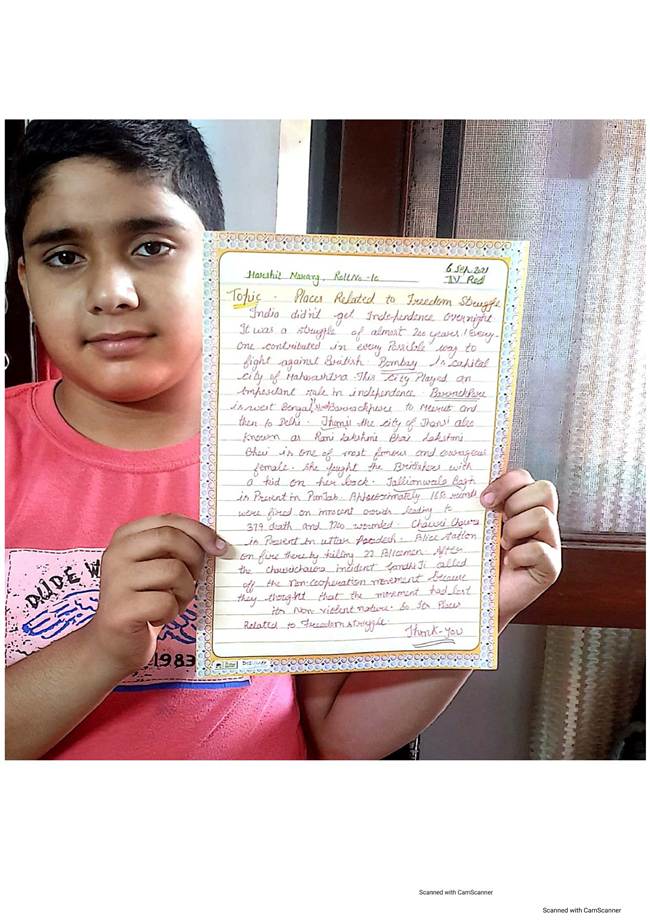 Harshit Narang, Roll No - 10
6 Sep. 2021
IV Red
Topic . Places Related to Freedom Struggle
India didn't get Independence overnight
It was a struggle of almost 200 years. Every-
one contributed in every Possible way to
fight against British. Bombay Is capital
city of Maharashtra. This city Played an
important role in independence.
is west Bengal, from Barrackpore to Meerut and
then to Delhi. Jhansi the city of Jhansi also
known as Rani Lakshmi Bhai Lakshmi
Bhai is one of most famous and courageous
female. She fought the Britishers with
a kid on her back. Jallionwala Bagh
is Present in Panjab. Approximately 1650 rounds
were fired on innocent crowds leading to
379 death and 1200 wounded. Chauri Chaura
is Present in uttar Pradesh. Police station
on fire there by killing 22 Policemen. After
the Chaurichaura incident Gandhi Ji called
off the Non-cooperation movement because
they thought that the movement had lost
its Non violent nature. So Places
Related to Freedom struggle.
Thank-You
DUDE W
1983
Scanned with CamScanner
Scanned with CamScanner